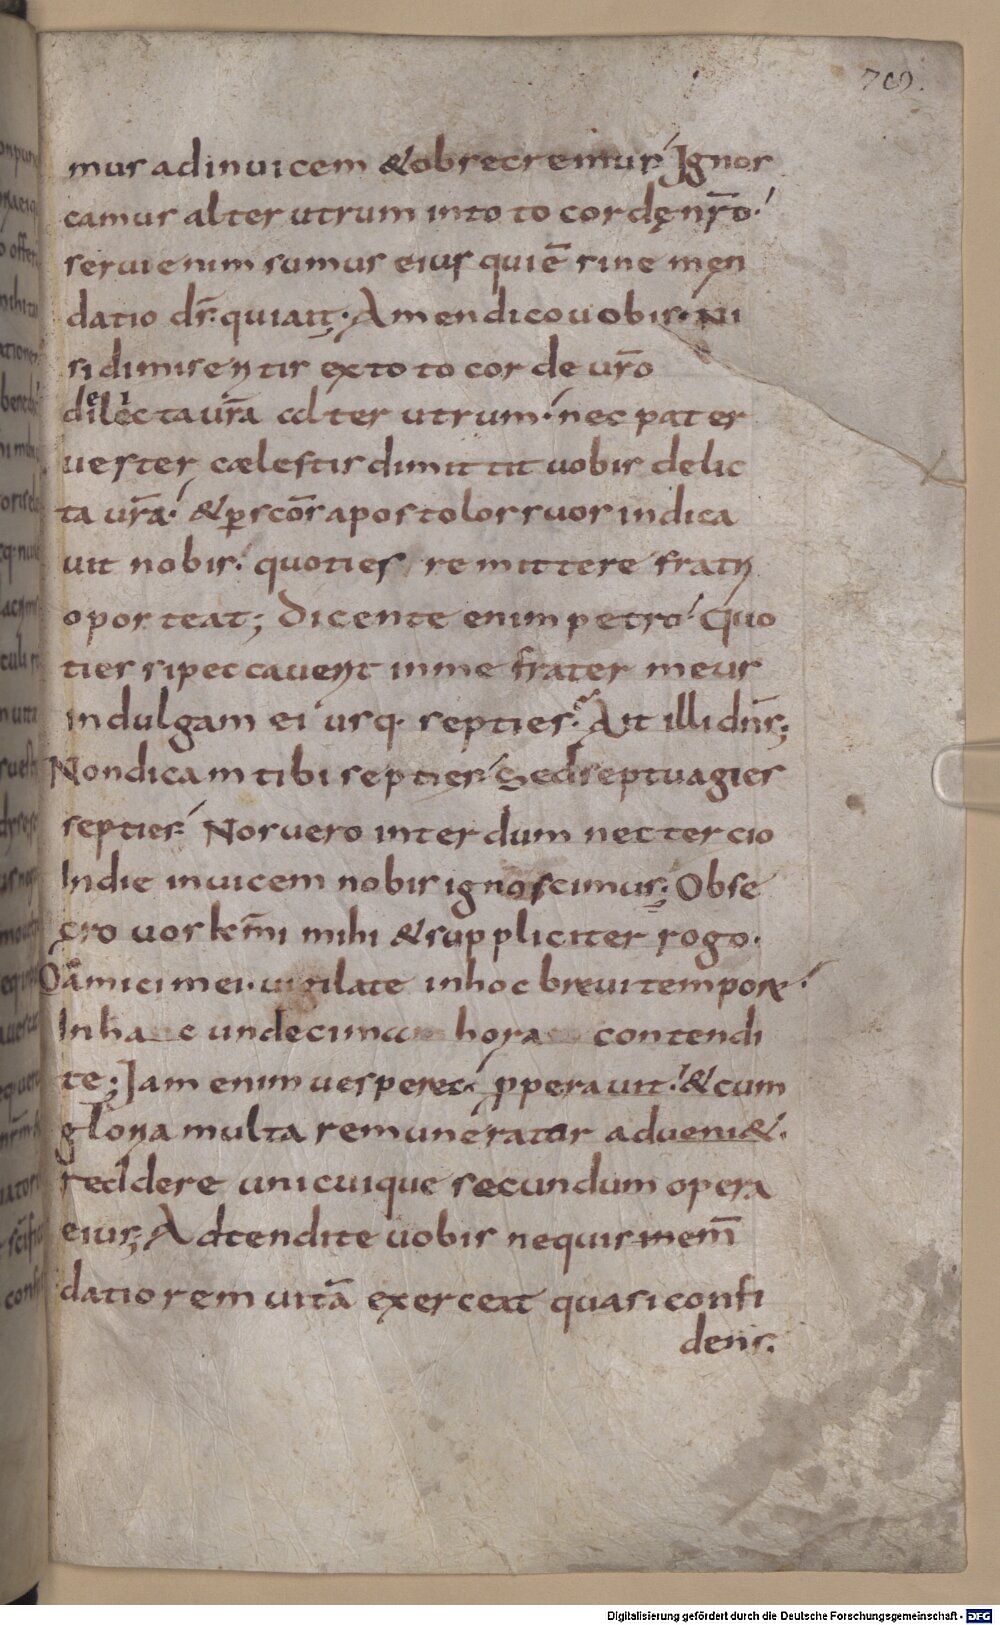 709.
mus adinuicem &obsecremur. Ignos
camus alterutrum in toto cordę nr̄o.
serui enim sumus eius qui ē sine men
datio dn̄s. qui ait. Amen dico uobis. Ni
si dimiseritis ex toto corde ur̄o
delicta ur̄a alterutrum. nec pater
uester cælestis dimittit uobis delic
ta ur̄a. & ꝑ sc̄os apostolos suos indica
uit nobis. quoties remittere fratri
oporteat; Dicente enim petro. Quo
ties si peccauerit in me frater meus
indulgam ei usq. septies. Ait illi dn̄s;
Non dico tibi septies. Sed septuagies
septies. Nos uero interdum nec tercio
In die inuicem nobis ignoscimus; Obse
cro uos kr̄mi mihi & suppliciter rogo.
O amici mei. uigilate in hoc breui tempore.
In hac undecima hora contendi
te; Iam enim uesper ec. ꝓperauit. & cum
gloria multa remunerator adueni&.
reddere unicuique secundum opera
eius; Adtendite uobis nequis mem̄
datiorem uitā exerceat quasi confi
dens.
Digitalisierung gefördert durch die Deutsche Forschungsgemeinschaft - DFG